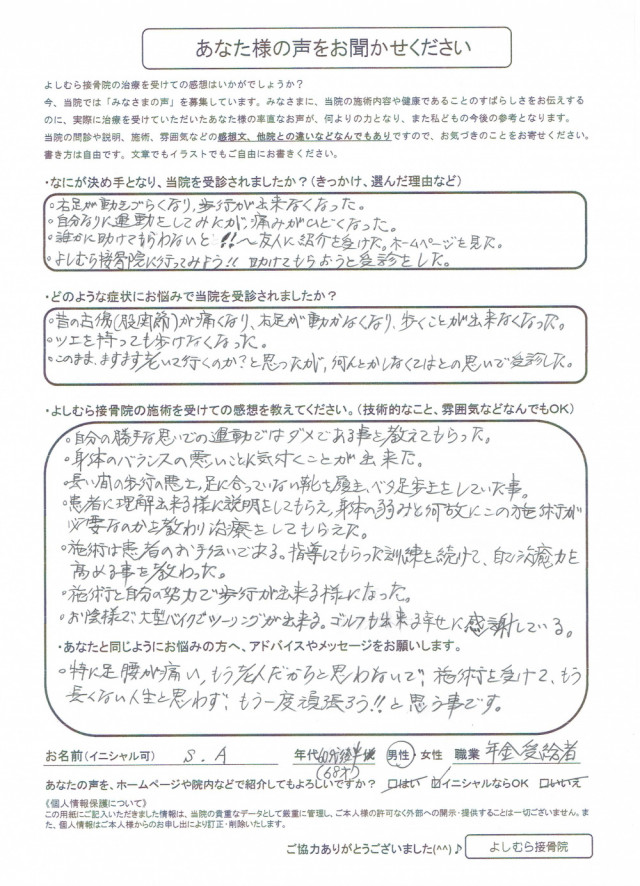 あなた様の声をお聞かせください
よしむら接骨院の治療を受けての感想はいかがでしょうか？
今、当院では「みなさまの声」を募集しています。みなさまに、当院の施術内容や健康であることのすばらしさをお伝えする
のに、実際に治療を受けていただいたあなた様の率直なお声が、何よりの力となり、また私どもの今後の参考となります。
当院の問診や説明、施術、雰囲気などの感想文、他院との違いなどなんでもありですので、お気づきのことをお寄せください。
書き方は自由です。文章でもイラストでもご自由にお書きください。
・なにが決め手となり、当院を受診されましたか？（きっかけ、選んだ理由など）
・右足が動きづらくなり、歩行が出来なくなった。
・自分なりに運動をしてみたが、痛みがひどくなった。
・誰かに助けてもらわないと!!〜友人に紹介を受けた。ホームページを見た。
・よしむら接骨院に行ってみよう!! 助けてもらおうと受診をした。
・どのような症状にお悩みで当院を受診されましたか？
・昔の古傷(股関節)が痛くなり、右足が動かなくなり、歩くことが出来なくなった。
・ツエを持っても歩けなくなった。
・このまま、ますます老いて行くのか？と思ったが、何んとかしなくてはとの思いで受診した。
・よしむら接骨院の施術を受けての感想を教えてください。（技術的なこと、雰囲気などなんでもOK）
・自分の勝手な思いでの運動ではダメである事を教えてもらった。
・身体のバランスの悪いことに気付くことが出来た。
・長い間の歩行の悪さ、足に合っていない靴を履き、ベタ足歩きをしていた事。
・患者に理解出来る様に説明をしてもらえ、身体の弱みと何故にこの施術が
必要なのかを教わり治療をしてもらえた。
・施術は患者のお手伝いである。指導してもらった訓練を続けて、自己治癒力を
高める事を教わった。
・施術と自分の努力で歩行が出来る様になった。
・お陰様で、大型バイクでツーリングが出来る。ゴルフも出来る幸せに感謝している。
・あなたと同じようにお悩みの方へ、アドバイスやメッセージをお願いします。
・特に足腰が痛い、もう老人だからと思わないで、施術を受けて、もう
長くない人生と思わず、もう一度頑張ろう!!と思う事です。
お名前（イニシャル可） S.A 年代 60 (68才) 男性・女性 職業 年金受給者
あなたの声を、ホームページや院内などで紹介してもよろしいですか？ □はい ☑イニシャルならOK □いいえ
《個人情報保護について》
この用紙にご記入いただきました情報は、当院の貴重なデータとして厳重に管理し、ご本人様の許可なく外部への開示・提供することは一切ございません。ま
た、個人情報はご本人様からのお申し出により訂正・削除いたします。
ご協力ありがとうございました(^^)♪ よしむら接骨院